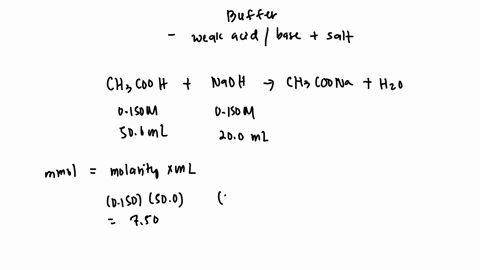 Buffer
- weak acid / base + salt
CH3COOH + NaOH → CH3COONa + H2O
0.150M 0.150M
50.0 mL 20.0 mL
mmol = molarity x mL
(0.150) (50.0) (
= 7.50